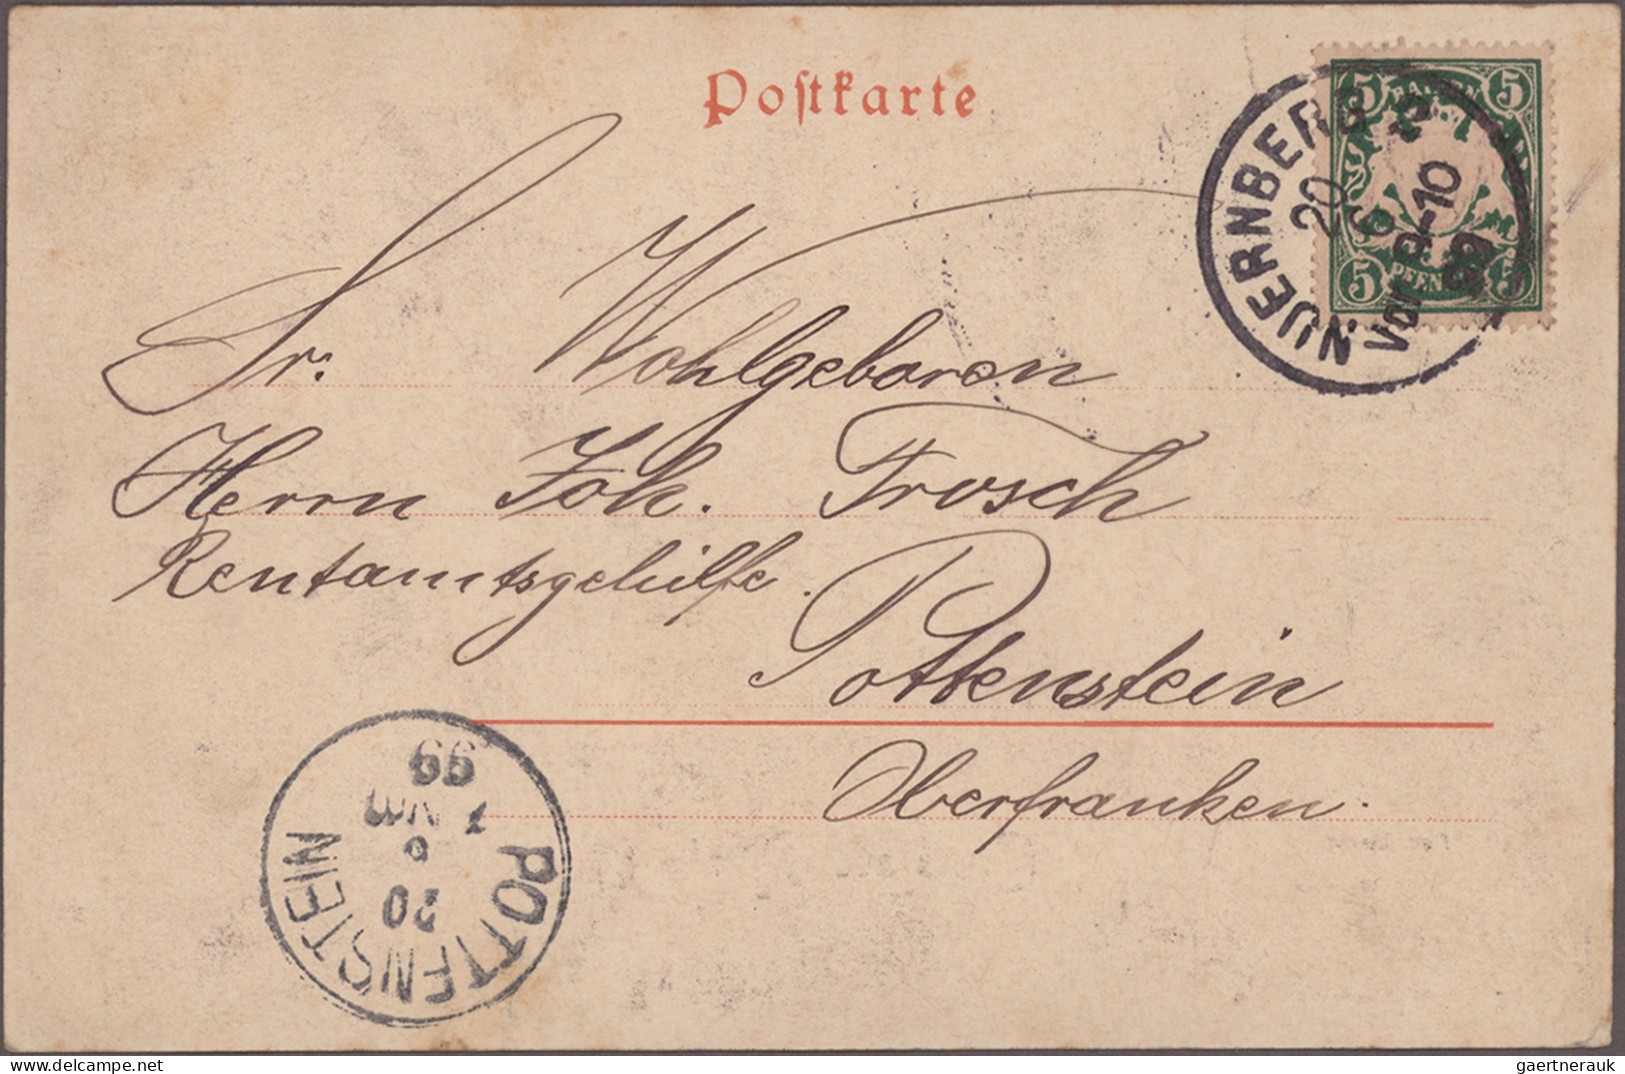 Postkarte
5 BAYERN 5
5 PFENNIG 5
NUERNBERG 2
20
6
Vor 9-10
99
Sr. Wohlgeboren
Herrn Joh. Frosch
Rentamtsgehilfe.
Pottenstein
Oberfranken.
POTTENSTEIN
20
6
NM
99
www.delcampe.net
gaertnerauk